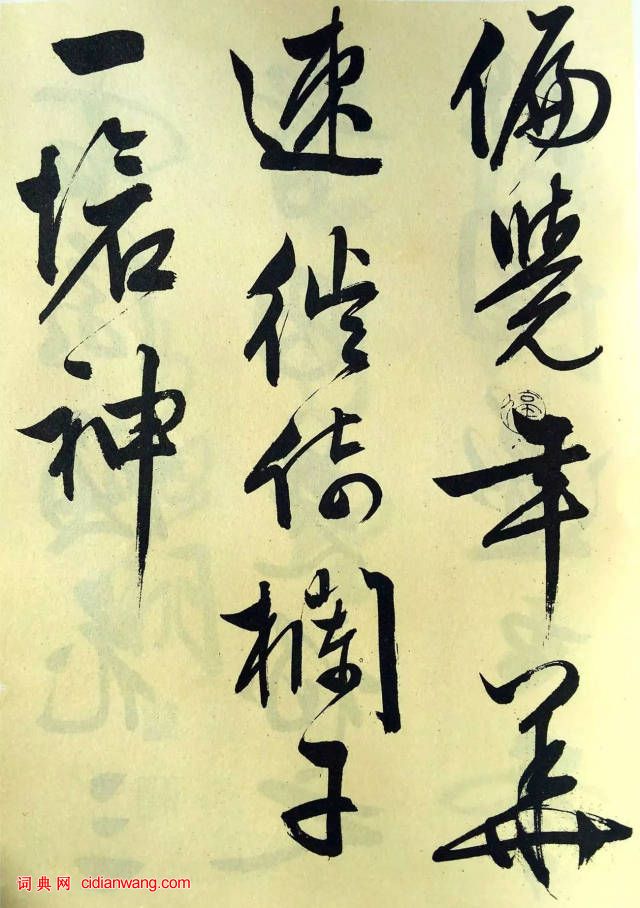 偏覺年華
速徙倚欄干
一愴神
词典网 cidianwang.com